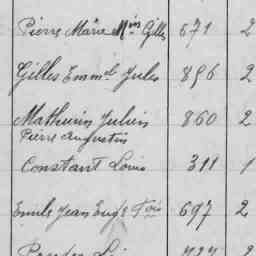 Pierre Marie Min Gilles 671 2
Gilles Emmel Jules 896 2
Mathurin Julien 860 2
Pierre Augustin
Constant Louis 311 1
Emile Jean Eugs Fois 697 2
727 2